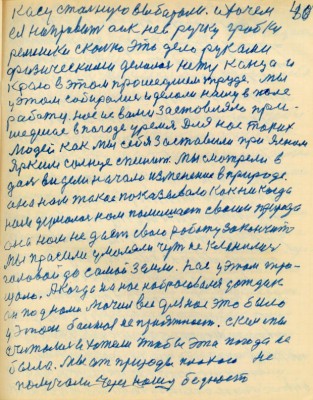 касу стальную выбарали. и хочем 40
ея направит ак ней ручку грабки
решётки сколко это дело руками
физическими делалос нету канца и
края в этом прошедшем труде. мы
у этом собиралися и делали нашу в поле
работу. нас не вами заставляло при-
шедшое в погоде время для нас таких
людей как мы себя заставили при ясном
ярким солнце спешит. мы смотрели в
даль видели начало изменение в природе.
она нам такое показывало как никогда
нам думалос нам помешает своим природа
она нам не дает свою работу закончить
мы прасили умоляли чут не кланялис
галавой до самой земли. нас у этом про-
шло. А когда на нас набрасовался дождик
он под нами мочил все для нас это было
у этом балшая неприятность. с кем мы
считалися и хотели чтобы эта погода не
была. мы от природы плохого не
получали через нашу бедность